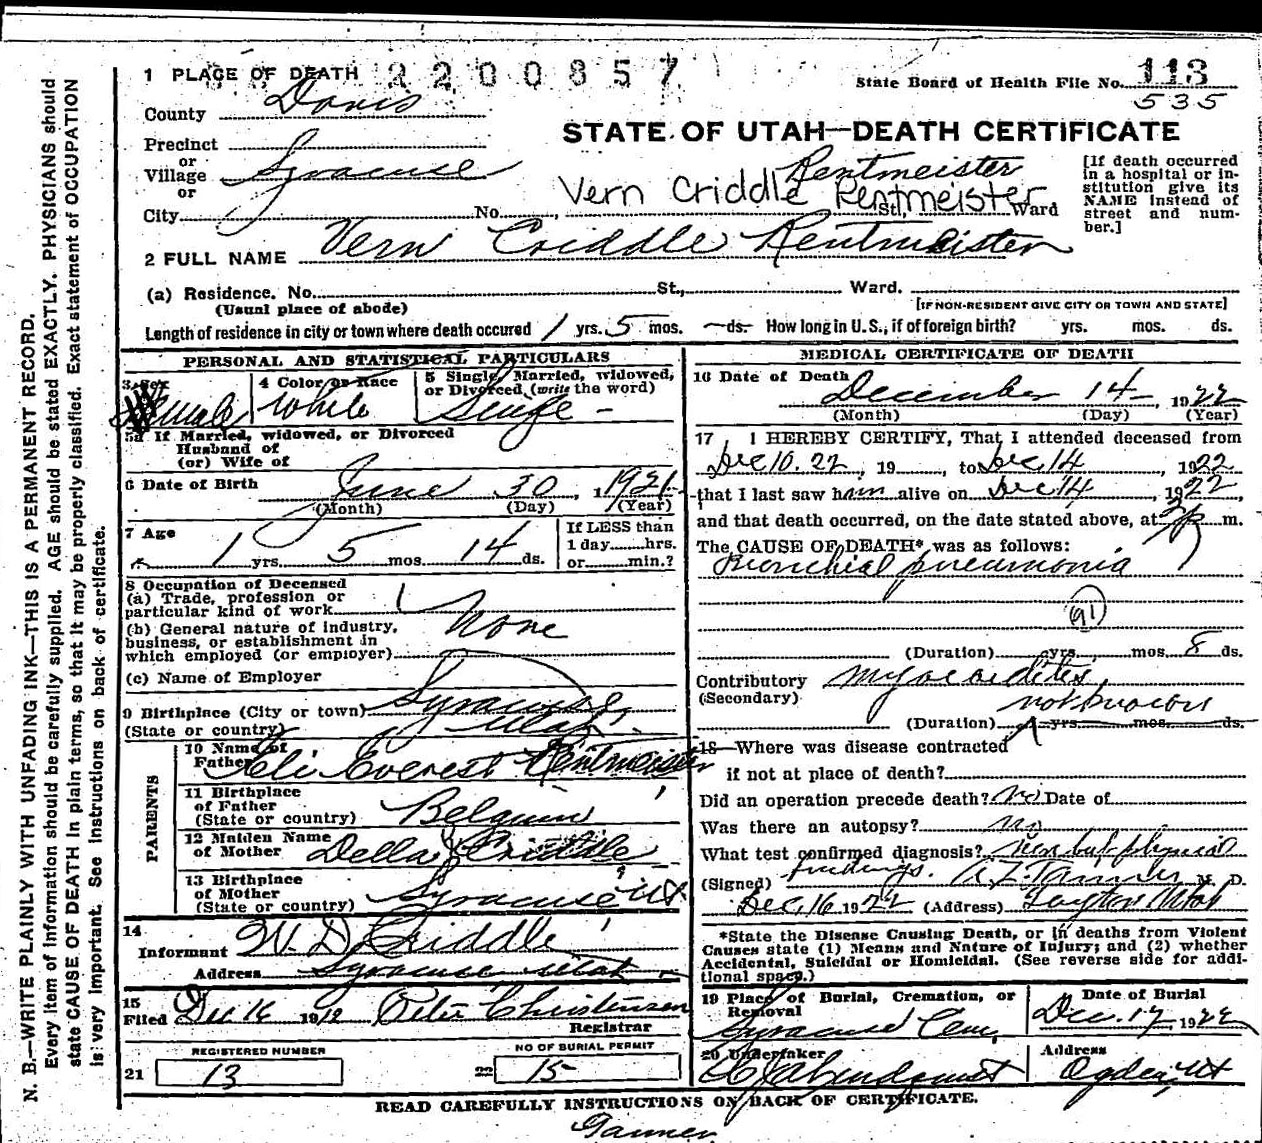 1 PLACE OF DEATH 2200857
State Board of Health File No. 113
535
County Davis
STATE OF UTAH—DEATH CERTIFICATE
Precinct
or
Village Syracuse
or
Rentmeister
Vern Criddle Rentmeister
City No. St., Ward
[If death occurred in a hospital or in-
stitution give its
NAME instead of
street and num-
ber.]
2 FULL NAME Vern Criddle Rentmeister
(a) Residence. No. St., Ward.
(Usual place of abode) [IF NON-RESIDENT GIVE CITY OR TOWN AND STATE]
Length of residence in city or town where death occured 1 yrs. 5 mos. — ds. How long in U. S., if of foreign birth? yrs. mos. ds.
PERSONAL AND STATISTICAL PARTICULARS
3 Sex Male
4 Color or Race White
5 Single, Married, widowed,
or Divorced (write the word)
Single
5a If Married, widowed, or Divorced
Husband of
(or) Wife of
6 Date of Birth June 30, 1921
(Month) (Day) (Year)
7 Age 1 yrs. 5 mos. 14 ds.
If LESS than
1 day hrs.
or min.?
8 Occupation of Deceased
(a) Trade, profession or
particular kind of work
(b) General nature of industry,
business, or establishment in
which employed (or employer)
None
(c) Name of Employer
9 Birthplace (City or town) Syracuse
(State or country) Utah
PARENTS
10 Name of
Father Eli Everest Rentmeister
11 Birthplace
of Father
(State or country) Belgium
12 Maiden Name
of Mother Della Criddle
13 Birthplace
of Mother
(State or country) Syracuse Ut
14
Informant W. D. Criddle
Address Syracuse Utah
15
Filed Dec 16 19 Peter Christensen
Registrar
REGISTERED NUMBER
21 13
NO OF BURIAL PERMIT
22 15
MEDICAL CERTIFICATE OF DEATH
16 Date of Death December 14 1922
(Month) (Day) (Year)
17 I HEREBY CERTIFY, That I attended deceased from
Dec 10. 22, 19, to Dec 14, 1922
that I last saw him alive on Dec 14, 1922,
and that death occurred, on the date stated above, at m.
The CAUSE OF DEATH* was as follows:
Bronchial pneumonia
91
(Duration) yrs. mos 8 ds.
Contributory Myocarditis
(Secondary) not known
(Duration) yrs. mos. ds.
18 Where was disease contracted
if not at place of death?
Did an operation precede death? no Date of
Was there an autopsy? no
What test confirmed diagnosis? physical
findings.
(Signed) Tanner M. D.
Dec 16 1922 (Address) Layton Utah
*State the Disease Causing Death, or in deaths from Violent
Causes state (1) Means and Nature of Injury; and (2) whether
Accidental, Suicidal or Homicidal. (See reverse side for addi-
tional space.)
19 Place of Burial, Cremation, or
Removal
Syracuse Cem.
Date of Burial
Dec. 17 1922
20 Undertaker
Address
Ogden, Ut
READ CAREFULLY INSTRUCTIONS ON BACK OF CERTIFICATE.
Tanner
N. B.—WRITE PLAINLY WITH UNFADING INK—THIS IS A PERMANENT RECORD.
Every item of information should be carefully supplied. AGE should be stated EXACTLY. PHYSICIANS should
state CAUSE OF DEATH in plain terms, so that it may be properly classified. Exact statement of OCCUPATION
is very important. See instructions on back of certificate.